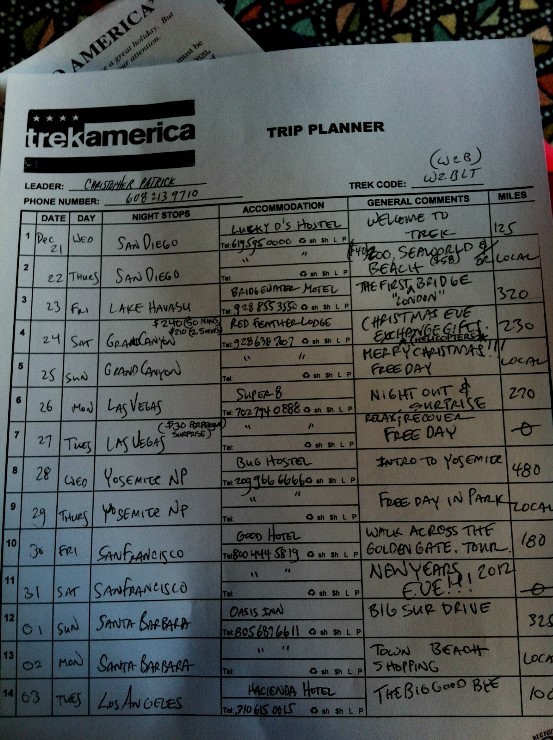 O AMERICA
a great holiday. But
our attention.
must be
trekamerica
TRIP PLANNER
(W2B)
LEADER: CHRISTOPHER PATRICK
TREK CODE: W2BLT
PHONE NUMBER: 608 213 9710
DATE DAY NIGHT STOPS ACCOMMODATION GENERAL COMMENTS MILES
1 Dec 21 WED SAN DIEGO LUCKY D'S HOSTEL WELCOME TO TREK 125
Tel: 619 595 0000 sh Sh L P
2 22 THURS SAN DIEGO " " ZOO, SEAWORLD & BEACH LOCAL
Tel: sh Sh L P
3 23 FRI LAKE HAVASU BRIDGEWATER MOTEL THE FIRST BRIDGE "LONDON" 320
Tel: 928 855 3550 sh Sh L P
$240 (50 MINS)
4 24 SAT GRAND CANYON RED FEATHER LODGE CHRISTMAS EVE EXCHANGE GIFTS. 230
HELICOPTERS
Tel: 928 638 sh Sh L P
5 25 SUN GRAND CANYON " " MERRY CHRISTMAS!!! FREE DAY LOCAL
Tel: sh Sh L P
6 26 MON LAS VEGAS SUPER 8 NIGHT OUT & SURPRISE 270
Tel: 702 794 0888 sh Sh L P
($30 PER PERSON SURPRISE)
7 27 TUES LAS VEGAS " " RELAX/RECOVER FREE DAY 0
Tel: sh Sh L P
8 28 WED YOSEMITE NP BUG HOSTEL INTRO TO YOSEMITE 480
Tel: 209 966 6666 sh Sh L P
9 29 THURS YOSEMITE NP " " FREE DAY IN PARK LOCAL
Tel: sh Sh L P
10 30 FRI SAN FRANCISCO GOOD HOTEL WALK ACROSS THE GOLDEN GATE. TOUR. 180
Tel: 800 444 5819 sh Sh L P
11 31 SAT SAN FRANCISCO " " NEW YEARS EVE!!! 2012 0
Tel: sh Sh L P
12 01 SUN SANTA BARBARA OASIS INN BIG SUR DRIVE 325
Tel: 805 687 6611 sh Sh L P
13 02 MON SANTA BARBARA " " TOWN BEACH SHOPPING LOCA
Tel: sh Sh L P
14 03 TUES LOS ANGELES HACIENDA HOTEL THE BIG GOOD BYE 10
Tel: 310 615 0015 sh Sh L P